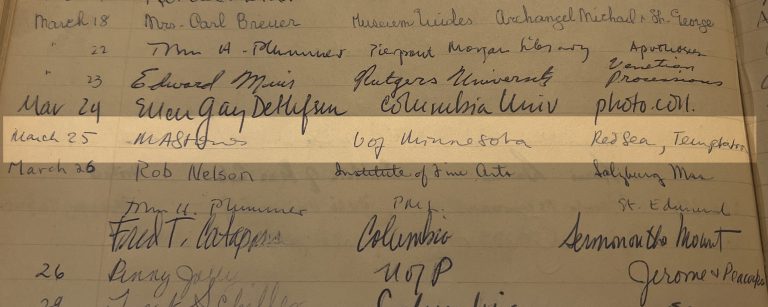 March 18 Mrs. Carl Breuer Museum Guides Archangel Michael & St. George
" 22 John H. Plummer Pierpont Morgan Library Apotheoses
" 23 Edward Muir Rutgers University Venetian Processions
Mar 24 Ellen Gay Detlefsen Columbia Univ photo.coll.
March 25 MAStones U of Minnesota Red Sea, Temptation
March 26 Rob Nelson Institute of Fine Arts Salzburg Mss
John H. Plummer PML. St. Edmund
Fred T. Columbia Sermon on the Mount
26 Penny U of P Jerome & Peacocks